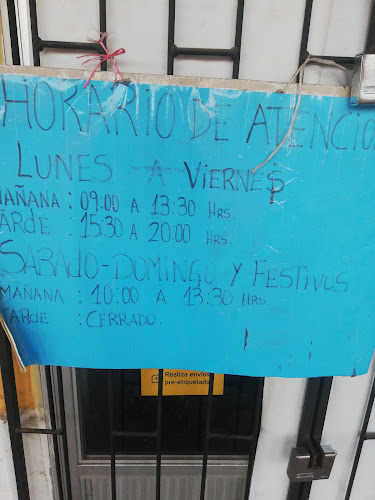 HORARIO DE ATENCIO
LUNES A VIERNES
MAÑANA : 09:00 A 13:30 HRS.
TARDE : 15:30 A 20:00 HRS.
SABADO-DOMINGO Y FESTIVOS
MAÑANA : 10:00 A 13:30 HRS
TARDE : CERRADO.
Realiza envíos
pre-etiquetado